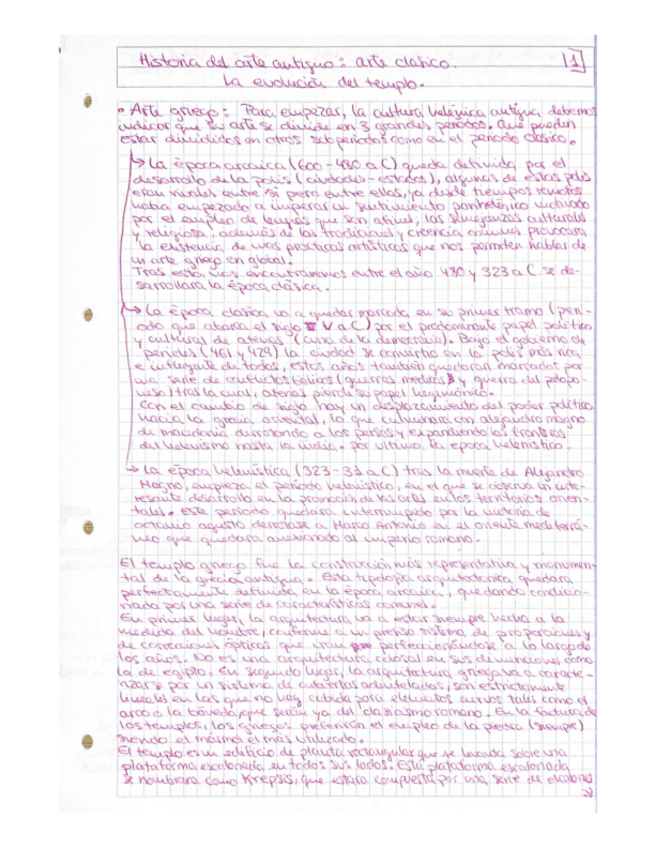 Historia del arte antiguo: arte clásico. [1]
La evolución del templo.
• Arte griego: Para empezar, la cultura helénica antigua, debemos
indicar que su arte se divide en 3 grandes periodos. Que pueden
estar divididos en otros subperiodos como en el periodo clásico.
→ La época arcaica (600-480 a C) queda definida por el
desarrollo de la polis (ciudades-estados), algunas de estas polis
eran rivales entre sí pero entre ellas, ya desde tiempos remotos
había empezado a imperar un sentimiento panhelénico motivado
por el empleo de lenguas que son afines, las semejanzas culturales
y religiosa, además de las tradiciones y creencia comunes provocara
la existencia de unas practicas artísticas que nos permiten hablar de
un arte griego en global.
Tras esto, nos encontraremos entre el año 480 y 323 a C. se de-
sarrollara la época clásica.
→ La época clásica va a quedar marcada en su primer tramo (peri-
odo que abarca el siglo V a C) por el predominante papel político
y cultural de atenas (cuna de la democracia). Bajo el gobierno de
pericles (461 y 429) la ciudad se convertira en la polis más rica
e influyente de todas, estos años también quedaran marcados por
una serie de conflictos bélicos (guerras medicas y guerra del pelopo-
neso) tras la cual, atenas pierde su papel hegemónico.
Con el cambio de siglo hay un desplazamiento del poder político
hacia la grecia oriental, lo que culminara con alejandro magno
de macedonia derrotando a los persas y expandiendo las fronteras
del helenismo hasta la india. por ultimo, la epoca helenistica.
→ La época helenística (323-31 a C) tras la muerte de Alejandro
Magno, empieza el periodo helenistico, en el que se observa un inte-
resante desarrollo en la promoción de las artes en los territorios orien-
tales. este periodo quedara interrumpido por la victoria de
octavio agusto derrotase a Marco Antonio en el oriente mediterrá-
neo que quedara anexionado al imperio romano.
El templo griego fue la construcción más representativa y monumen-
tal de la grecia antigua. Esta tipología arquitectonica quedara
perfectamente definida en la época arcaica, quedando condicio-
nada por una serie de características comunes.
En primer lugar, la arquitectura va a estar siempre hecha a la
medida del hombre, conforme a un preciso sistema de proporciones y
de correcciones ópticas que iran perfeccionándose a lo largo de
los años. No es una arquitectura colosal en sus dimensiones como
la de egipto. En segundo lugar, la arquitectura griega va a caracte-
rizarse por un sistema de cubiertas adinteladas, son estrictamente
lineales en las que no hay cabida para elementos curvos tales como el
arco o la bóveda, que serán ya del clasicismo romano. En la factura de
los templos, los griegos preferirán el empleo de la piedra (siempre)
siendo el mármol el más utilizado.
El templo es un edificio de planta rectangular que se levanta sobre una
plataforma escalonada en todos sus lados. Esta plataforma escalonada
se nombrara como Krepsis, que estara compuesta por una serie de escalones